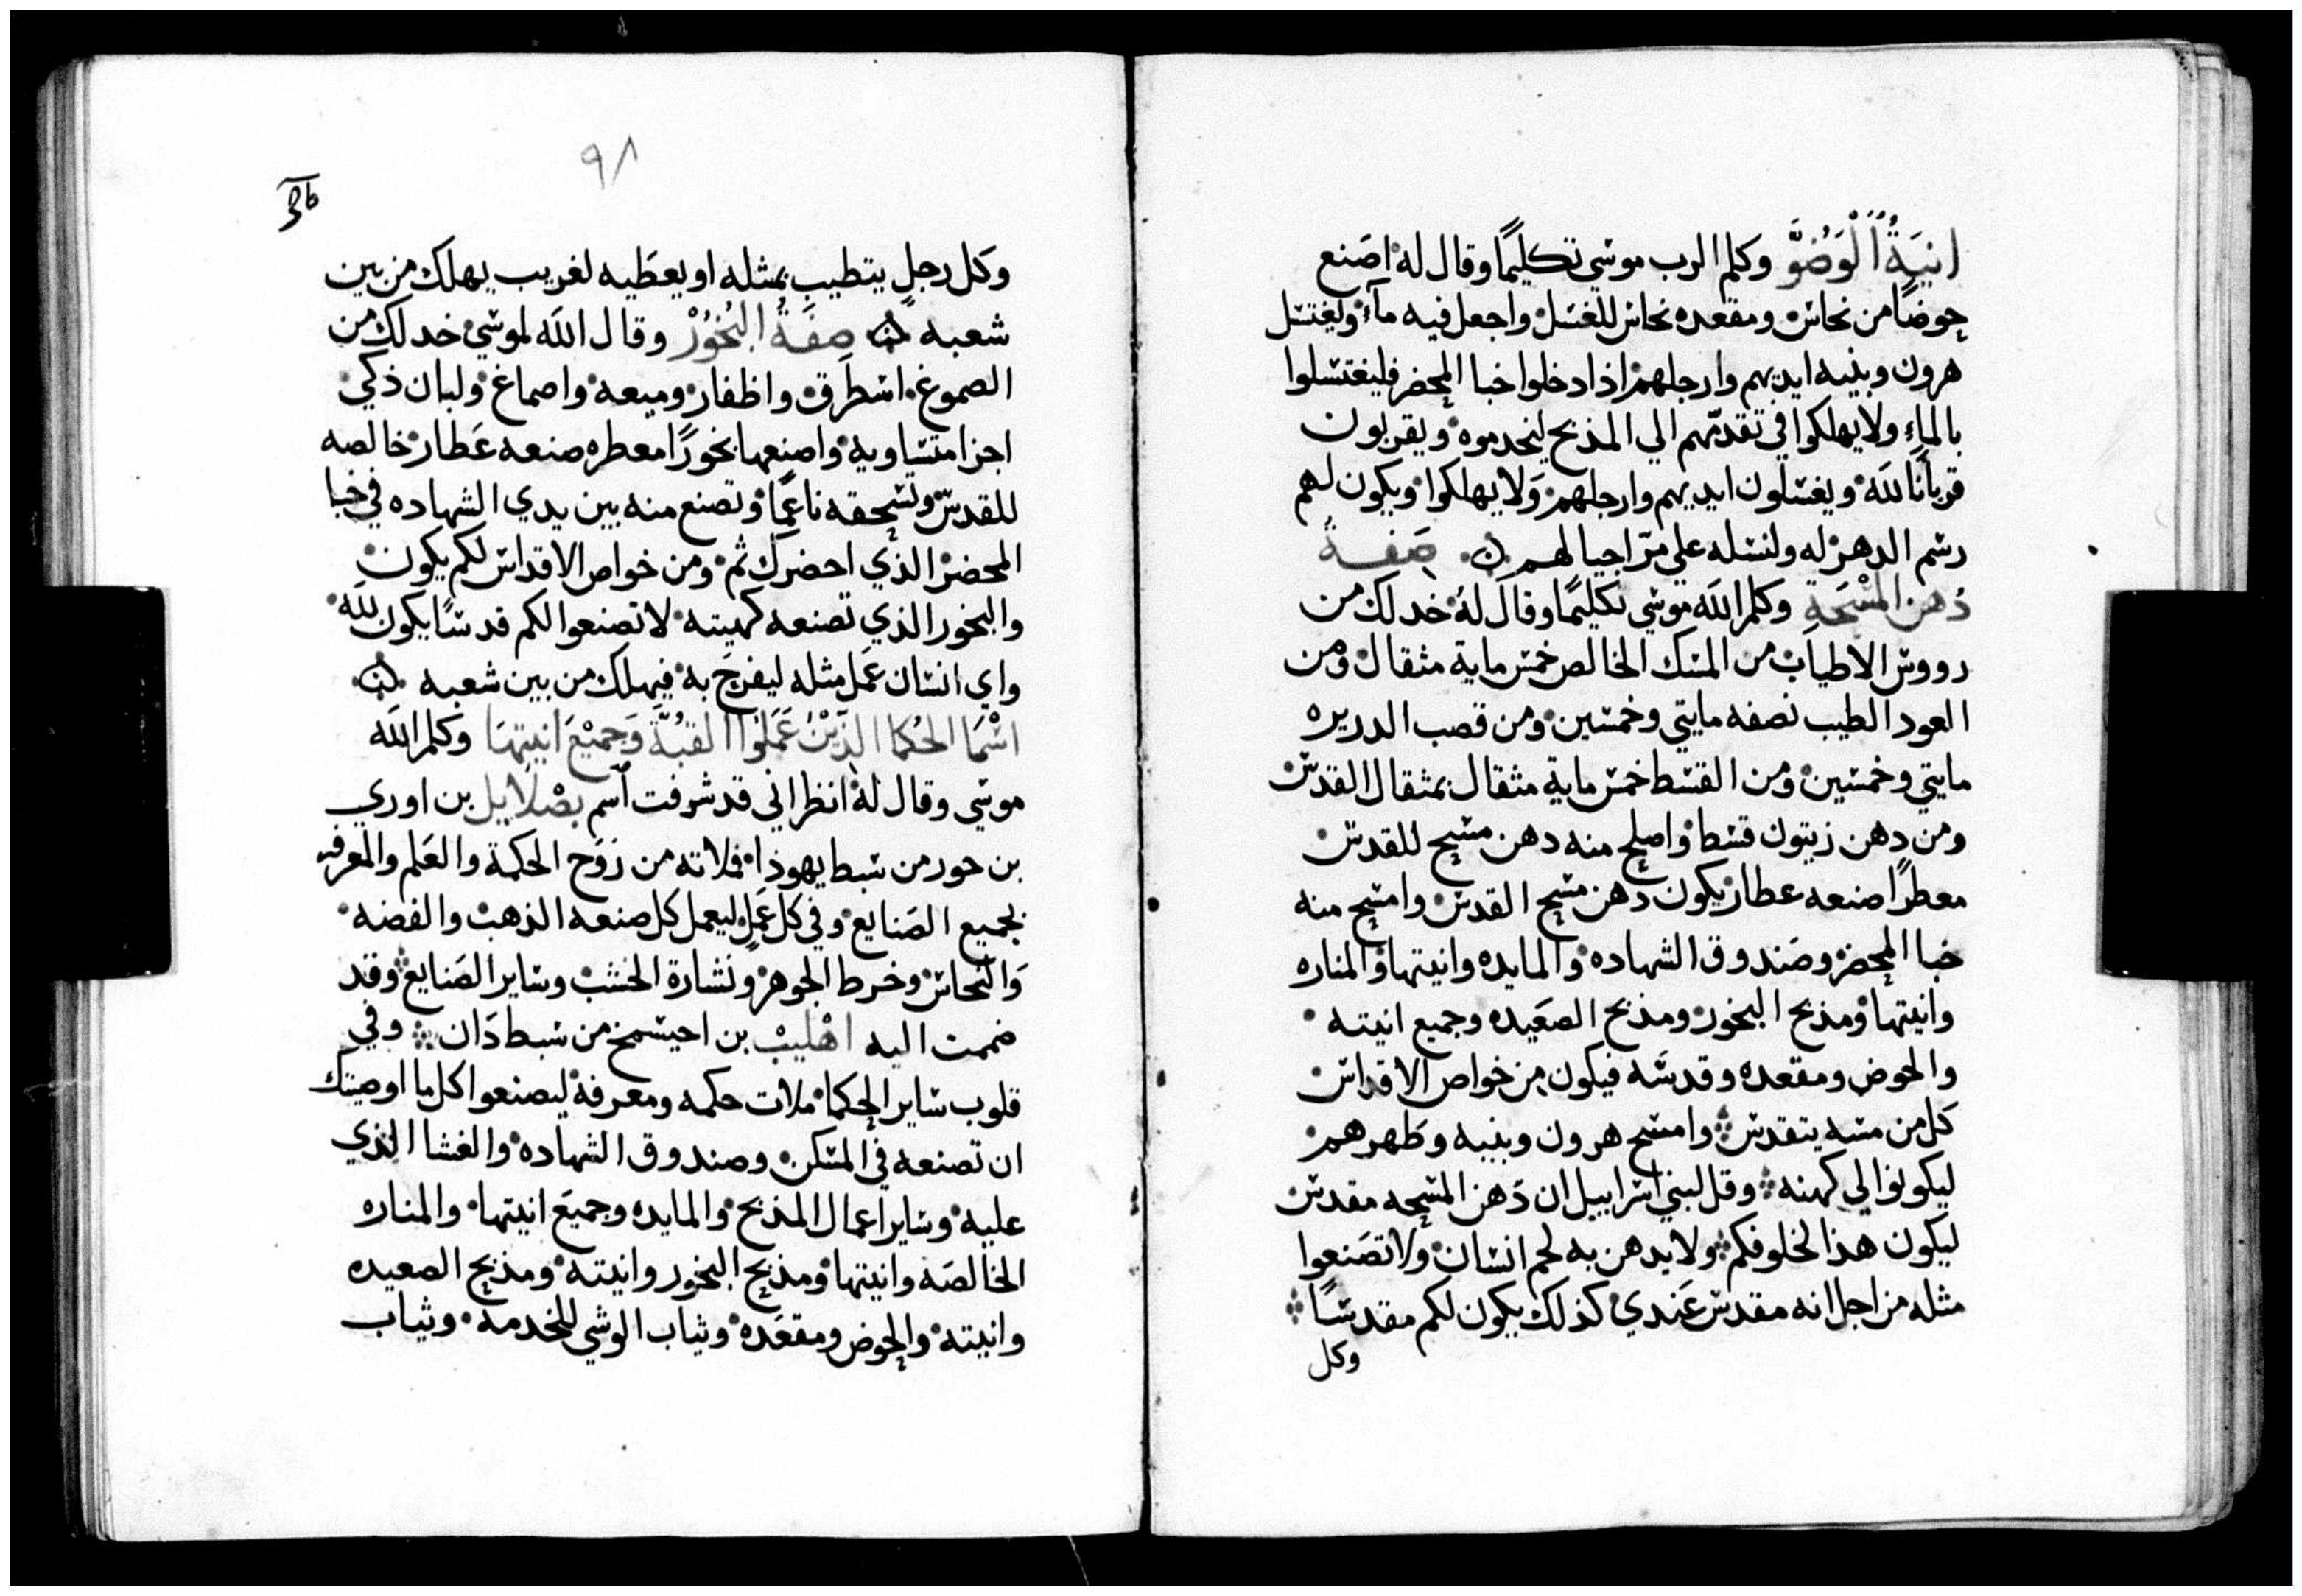 انيَةُ الْوَضُوَّ وكلم الرب موسي تكليمًا وقال له اصَنع
حوضًا من نحاس ومقعده نحاس للغسل واجعل فيه مآء وليغتسل
هرون وبنيه ايديهم وارجلهم اذا دخلوا خبا المحضر فليغتسلوا
بالماء ولا يهلكوا في تقدّمهم الي المذبح ليخدموه ويقربون
قربانًا لله ويغسلون ايديهم وارجلهم ولا يهلكوا ويكون لهم
رسم الدهر له ولنسله علي مرّ اجيالهم صَفةُ
دُهن المَسْحَةِ وكلم الله موسي تكليمًا وقال لهُ خد لك من
رووس الاطياب من المسك الخالص خمس ماية مثقال ومن
العود الطيب نصفه مايتي وخمسين ومن قصب الدريره
مايتي وخمسين ومن القسط خمس ماية مثقال بمثقال القدس
ومن دهن زيتون قسط واصلح منه دهن مسح للقدس
معطرًا صنعه عطار يكون دهن مسح القدس وامسح منه
خبا المحضر وصَندوق الشهاده والمايده وانيتها والمناره
وانيتها ومذبح البخور ومذبح الصعَيده وجميع انيته
والحوض ومقعده وقدسَه فيكون من خواص الاقداس
كل من مسه يتقدس وامسح هرون وبنيه وطَهرهم
ليكونوا لي كهنه وقل لبني اسراييل ان دَهن المسحه مقدس
ليكون هذا لخلوفكم ولا يدهن به لحم انسان ولا تصَنعوا
مثله من اجل انه مقدس عَندي كذلك يكون لكم مقدسًا
وكل
٩٨
وكل رجلٍ يتطيب بمثله او يعطَيه لغريب يهلك من بين
شعبه صِفَةُ البُخُوُرْ وقال الله لموسي خد لك من
الصموغ اسطرَق واظفار وميعه واصماغ ولبان ذكي
اجزا متساويه واصنعها بخورًا معطره صنعه عَطار خالصه
للقدس وتسحقه ناعمًا وتصنع منه بين يدي الشهاده في خبا
المحضر الذي احضرك ثم ومن خواص الاقداس لكم يكون
والبخور الذي تصنعه كهيته لا تصنعوا لكم قدسًا يكون لله
واي انسان عمَل مثله ليفرحَ به فيهلك من بين شعبه
اسْمَا الحُكما الذَيْنْ عَمَلوْا القبُةَّ وَجميْعَ انيتهَا وكلم الله
موسي وقال لهُ انظر اني قد شرفت اسم بصْلَاييل بن اوري
بن حور من سبط يهوذا فملاته من روَح الحكمة والعَلم والمعرفه
بجميع الصَنايع وفي كل عَملٍ ليعمل كل صنعه الذهب والفضه
وَالنحاس وخرط الجوهر ونشارة الخشب وساير الصَنايع وقد
ضممت اليه اهْليبْ بن احيسمخ من سبط دَان وفي
قلوب ساير الحكما ملات حكمه ومعرفة ليصنعوا كل ما اوصيتك
ان تصنعه في المسكن وصندوق الشهاده والغشا الذي
عليه وساير اعمال المذبح والمايده وجميعَ انيتها والمناره
الخالصَه وانيتها ومذبح البخور وانيته ومذبح الصعيده
وانيته والحوض ومقعَده وثياب الوشي للخدمه وثياب